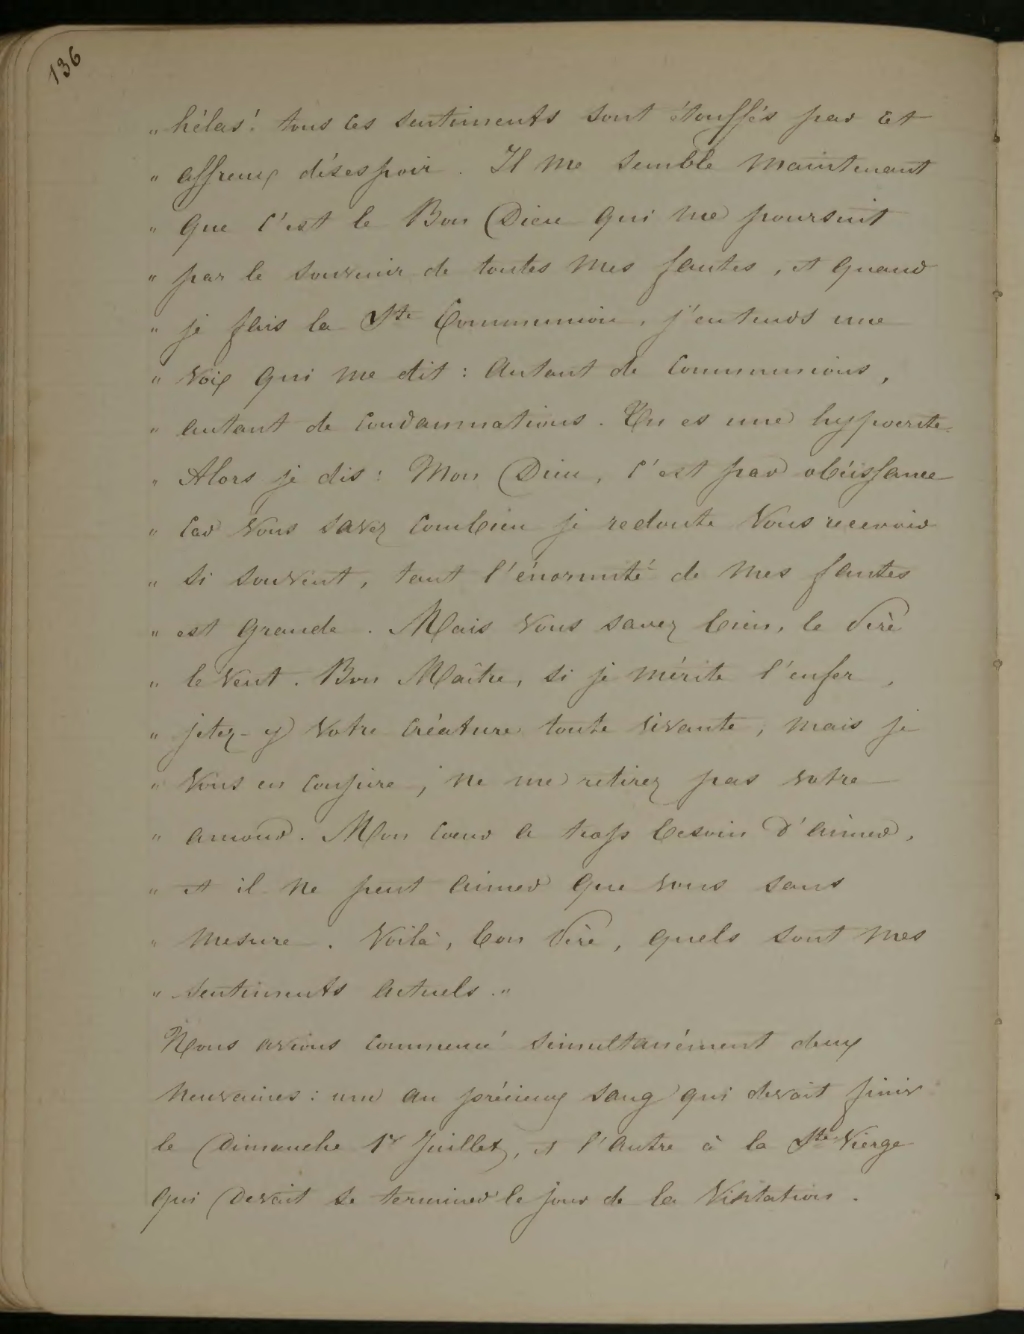 136
„ hélas! tous ces sentiments sont étouffés par cet
„ affreux désespoir. Il me semble maintenant
„ que c'est le Bon Dieu qui me poursuit
„ par le souvenir de toutes mes fautes, et quand
„ je fais la Ste Communion, j'entends une
„ voix qui me dit : autant de communions,
„ autant de condamnations. Tu es une hypocrite.
„ Alors je dis : Mon Dieu, c'est par obéissance
„ car vous savez combien je redoute vous recevoir
„ si souvent, tant l'énormité de mes fautes
„ est grande. Mais vous savez bien, le Père
„ le veut. Bon Maître, si je mérite l'enfer,
„ jetez-y votre créature toute vivante, mais je
„ vous en conjure, ne me retirez pas votre
„ amour. Mon coeur a trop besoin d'aimer,
„ et il ne peut aimer que vous sans
„ mesure. Voilà, bon Père, quels sont mes
„ sentiments actuels.„
Nous avions commencé simultanément deux
neuvaines : une au précieux sang qui devait finir
le Dimanche 1er Juillet, et l'autre à la Ste Vierge
qui devait se terminer le jour de la Visitation.